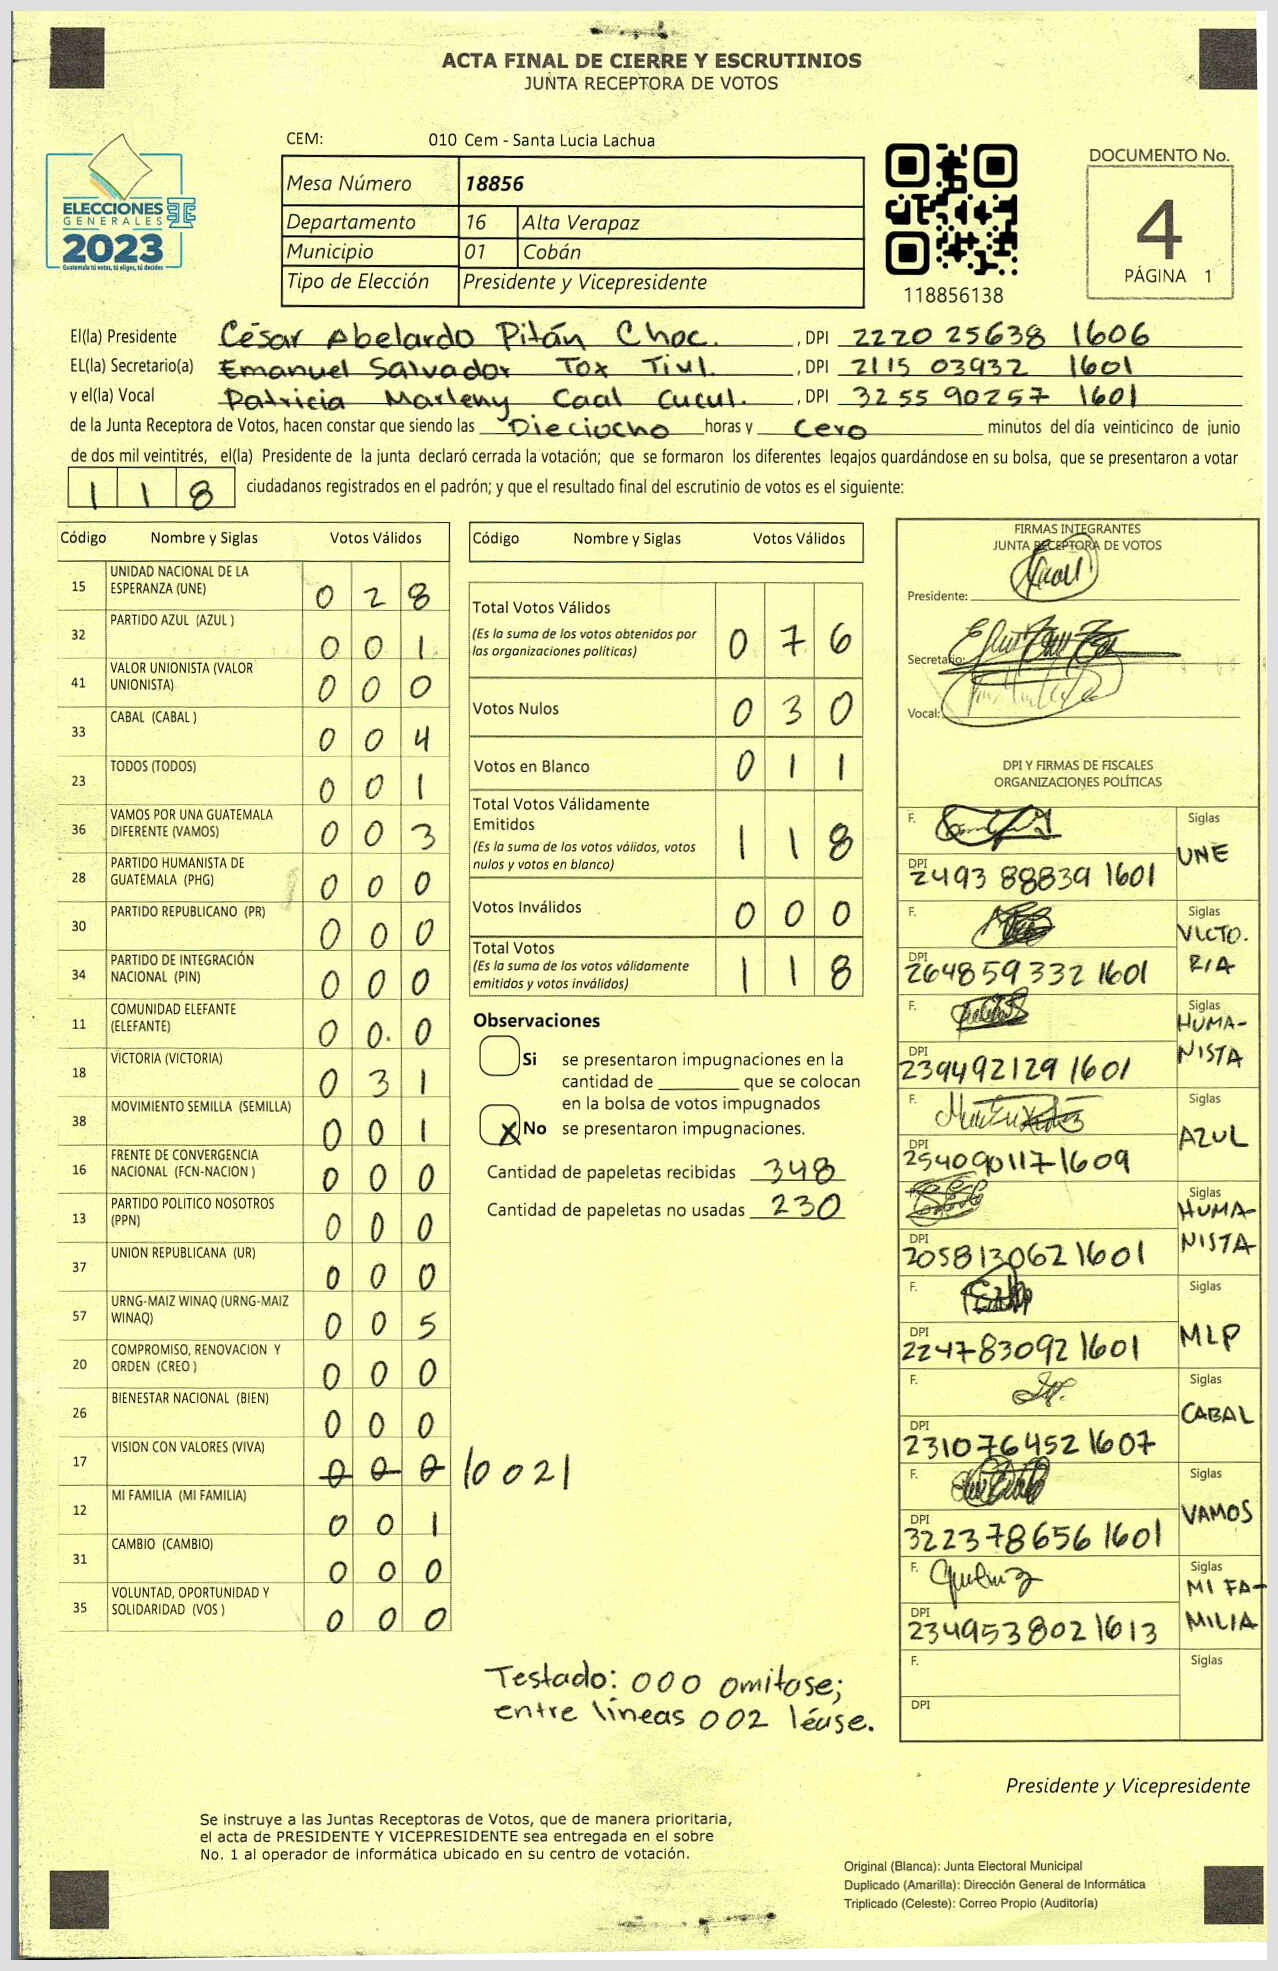 ACTA FINAL DE CIERRE Y ESCRUTINIOS
JUNTA RECEPTORA DE VOTOS
CEM: 010 Cem - Santa Lucia Lachua
Mesa Número 18856
Departamento 16 Alta Verapaz
Municipio 01 Cobán
Tipo de Elección Presidente y Vicepresidente
ELECCIONES
GENERALES TSE
2023
Guatemala tú votas, tú eliges, tú decides
118856138
DOCUMENTO No.
4
PÁGINA 1
El(la) Presidente César Abelardo Pitán Choc. , DPI 2220 25638 1606
EL(la) Secretario(a) Emanuel Salvador Tox Tiul. , DPI 2115 03932 1601
y el(la) Vocal Patricia Marleny Caal Cucul. , DPI 3255 90257 1601
de la Junta Receptora de Votos, hacen constar que siendo las Dieciocho horas y Cero minutos del día veinticinco de junio
de dos mil veintitrés, el(la) Presidente de la junta declaró cerrada la votación; que se formaron los diferentes legajos guardándose en su bolsa, que se presentaron a votar
118 ciudadanos registrados en el padrón; y que el resultado final del escrutinio de votos es el siguiente:
Código Nombre y Siglas Votos Válidos
15 UNIDAD NACIONAL DE LA ESPERANZA (UNE) 0 2 8
32 PARTIDO AZUL (AZUL ) 0 0 1
41 VALOR UNIONISTA (VALOR UNIONISTA) 0 0 0
33 CABAL (CABAL ) 0 0 4
23 TODOS (TODOS) 0 0 1
36 VAMOS POR UNA GUATEMALA DIFERENTE (VAMOS) 0 0 3
28 PARTIDO HUMANISTA DE GUATEMALA (PHG) 0 0 0
30 PARTIDO REPUBLICANO (PR) 0 0 0
34 PARTIDO DE INTEGRACIÓN NACIONAL (PIN) 0 0 0
11 COMUNIDAD ELEFANTE (ELEFANTE) 0 0. 0
18 VICTORIA (VICTORIA) 0 3 1
38 MOVIMIENTO SEMILLA (SEMILLA) 0 0 1
16 FRENTE DE CONVERGENCIA NACIONAL (FCN-NACION ) 0 0 0
13 PARTIDO POLITICO NOSOTROS (PPN) 0 0 0
37 UNION REPUBLICANA (UR) 0 0 0
57 URNG-MAIZ WINAQ (URNG-MAIZ WINAQ) 0 0 5
20 COMPROMISO, RENOVACION Y ORDEN (CREO ) 0 0 0
26 BIENESTAR NACIONAL (BIEN) 0 0 0
17 VISION CON VALORES (VIVA) 0 0 0 /002/
12 MI FAMILIA (MI FAMILIA) 0 0 1
31 CAMBIO (CAMBIO) 0 0 0
35 VOLUNTAD, OPORTUNIDAD Y SOLIDARIDAD (VOS ) 0 0 0
Código Nombre y Siglas Votos Válidos
Total Votos Válidos 0 7 6
(Es la suma de los votos obtenidos por
las organizaciones políticas)
Votos Nulos 0 3 0
Votos en Blanco 0 1 1
Total Votos Válidamente
Emitidos 1 1 8
(Es la suma de los votos válidos, votos
nulos y votos en blanco)
Votos Inválidos 0 0 0
Total Votos 1 1 8
(Es la suma de los votos válidamente
emitidos y votos inválidos)
Observaciones
Si se presentaron impugnaciones en la
cantidad de ________ que se colocan
en la bolsa de votos impugnados
X No se presentaron impugnaciones.
Cantidad de papeletas recibidas 348
Cantidad de papeletas no usadas 230
Testado: 000 omitase;
entre líneas 002 léase.
FIRMAS INTEGRANTES
JUNTA RECEPTORA DE VOTOS
Presidente:
Secretario:
Vocal:
DPI Y FIRMAS DE FISCALES
ORGANIZACIONES POLÍTICAS
F. Siglas
DPI 2493 88839 1601 UNE
F. Siglas
DPI 264859332 1601 VICTO.RIA
F. Siglas
DPI 239492129 1601 HUMA-NISTA
F. Siglas
DPI 254090117 1609 AZUL
F. Siglas
DPI 205813062 1601 HUMA-NISTA
F. Siglas
DPI 224783092 1601 MLP
F. Siglas
DPI 231076452 1607 CABAL
F. Siglas
DPI 322378656 1601 VAMOS
F. Siglas
DPI 234953802 1613 MI FA-MILIA
F. Siglas
DPI
Presidente y Vicepresidente
Se instruye a las Juntas Receptoras de Votos, que de manera prioritaria,
el acta de PRESIDENTE Y VICEPRESIDENTE sea entregada en el sobre
No. 1 al operador de informática ubicado en su centro de votación.
Original (Blanca): Junta Electoral Municipal
Duplicado (Amarilla): Dirección General de Informática
Triplicado (Celeste): Correo Propio (Auditoría)